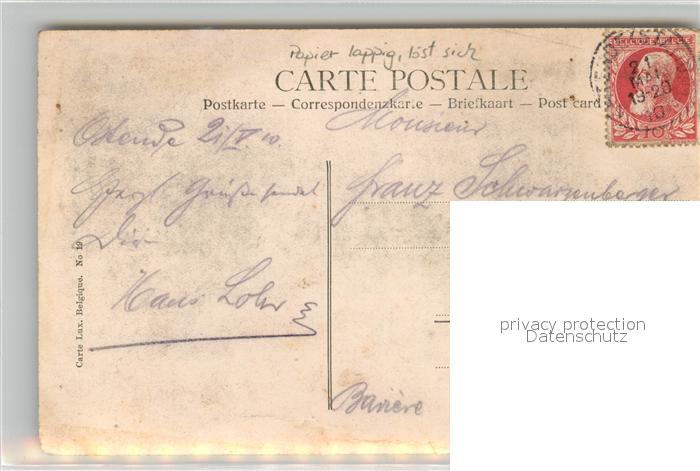 Papier lappig, löst sich
CARTE POSTALE
Postkarte — Correspondenzkarte — Briefkaart — Post card
BELGIQUE
21
MAI
19-20
10
Ostende 21/V 10.
Monsieur
Franz Schwarzenberger
Herzl. Grüße sendet
Dir
Hans Lohr
Bavière
Carte Lux. Belgique. No 19
privacy protection
Datenschutz